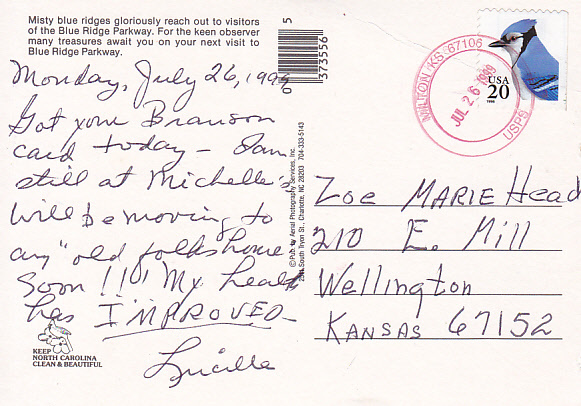 Misty blue ridges gloriously reach out to visitors
of the Blue Ridge Parkway. For the keen observer
many treasures await you on your next visit to
Blue Ridge Parkway.
Monday, July 26, 1999
Got your Branson
card today - Iam
still at Michelle's
will be moving to
my "old folks home"
soon !!!! My health
has IMPROVED-
Lucille
KEEP
NORTH CAROLINA
CLEAN & BEAUTIFUL
5
373556
© Pub. by Aerial Photography Services, Inc.
South Tryon St., Charlotte, NC 28203 704-333-5143
MILTON KS 67106
JUL 26 1999
USPS
USA
20
1996
Zoe MARIE Head
210 E. Mill
Wellington
KANSAS 67152